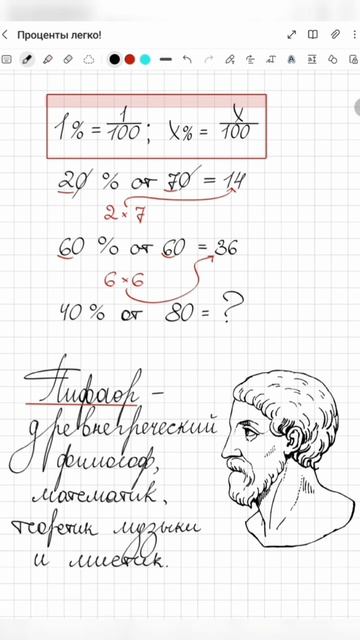 Проценты легко!
1% = 1/100 ; X% = X/100
20 % от 70 = 14
2 × 7
60 % от 60 = 36
6 × 6
40 % от 80 = ?
Пифагор –
древнегреческий
философ,
математик,
теоретик музыки
и мистик.